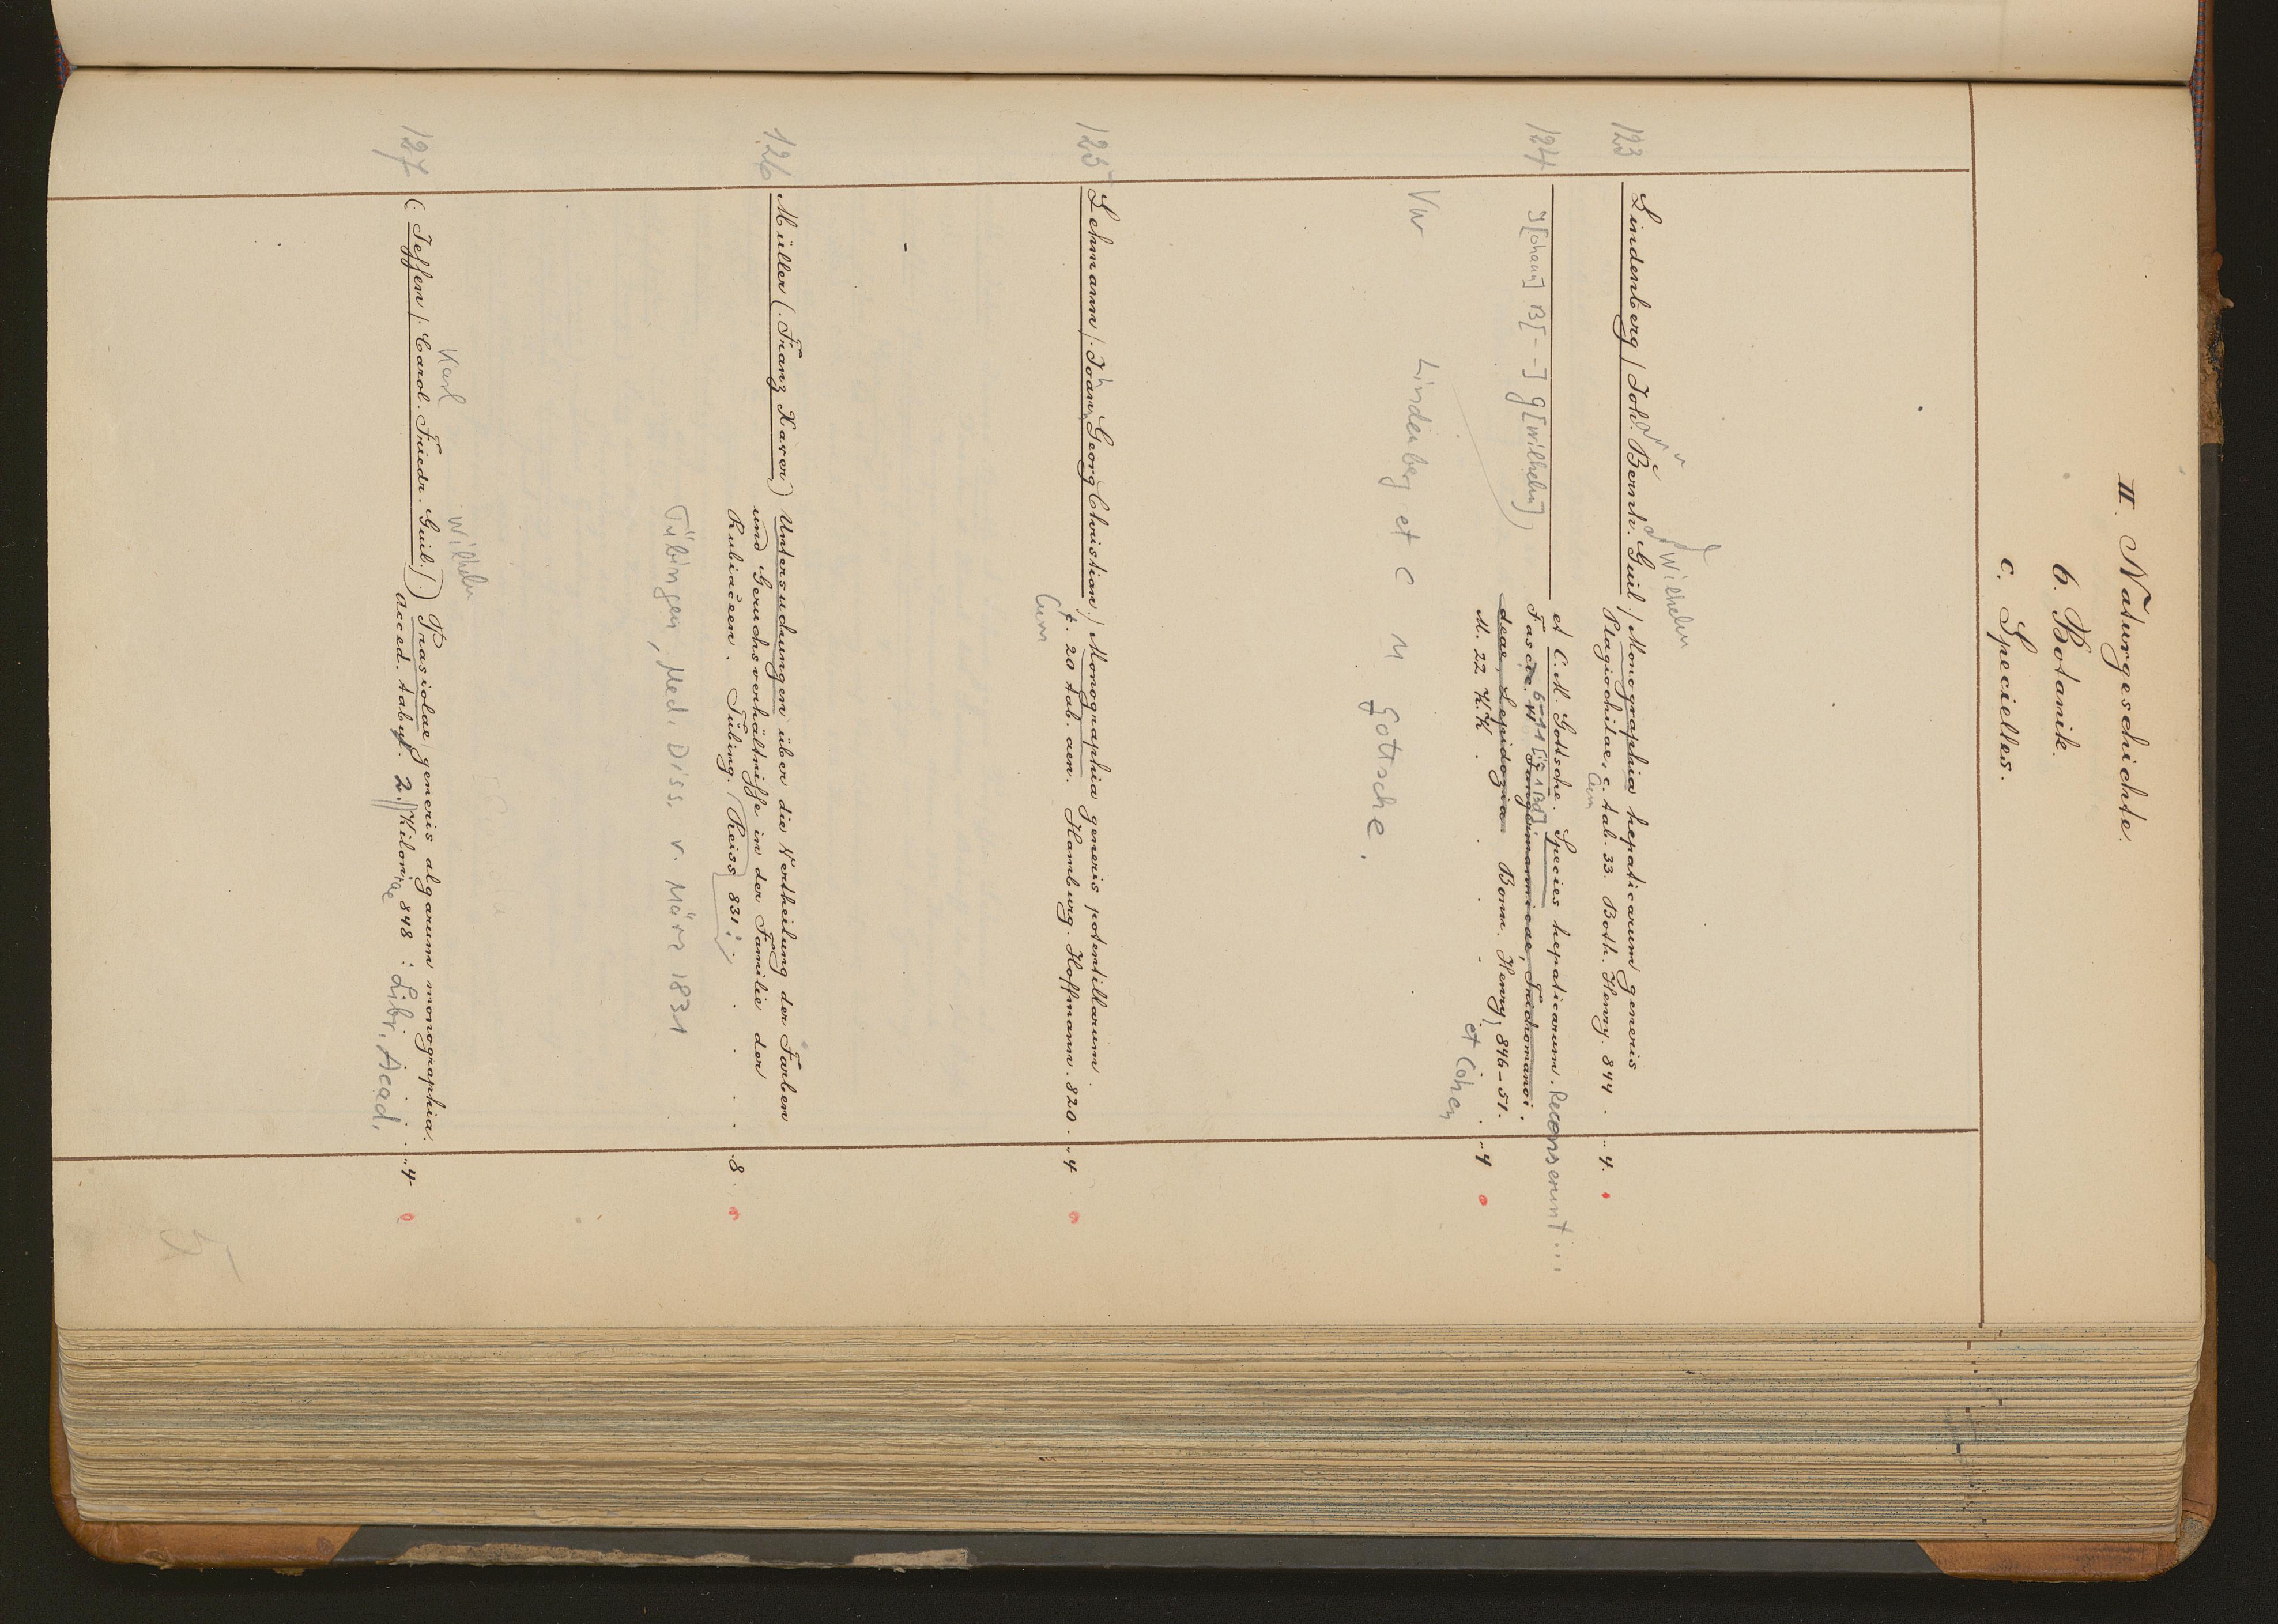 II. Naturgeschichte.
b. Botanik.
c. Specielles.
Wilhelm
123 Lindenberg (Joh. Bernh. Guil.) Monographia hepaticarum generis
Plagiochilae, c. tab. 33. Both. Henry. 844 . .. 4.
Cum
124 J[ohann] B[--] G[wilhelm] et C. M. Gottsche. Species hepaticarum. Reconserunt...
Fascic. 6-11 [ig 1 Bd] VI Jungermannicae, Trichomanoi.
deae, Lepidozia Bonn. Henry, 846-51.
M. 22 K.K. . . . . . .. 4
et Cohen
Vw Lindenberg et C M Gottsche.
125 Lehmann (Joann. Georg Christian.) Monographia generis potentillarum.
c. 20 tab. aen. Hamburg. Hoffmann. 820 . .. 4
Cum
126 Müller (Franz Xaver) Untersuchungen über die Vertheilung der Farben
und Geruchsverhältniſſe in der Familie der
Rubiaceen. Tübing. (Reiss 831: . . . . 8.
Tübingen, Med. Diss. v. März 1831
Karl Wilhelm
127 (Jeſſen (Carol. Friedr. Guil.)) Prasiolae generis algarum monographia.
acced. tabul. 2. Kiloniae 848 : Libr. Acad. . . .. 4